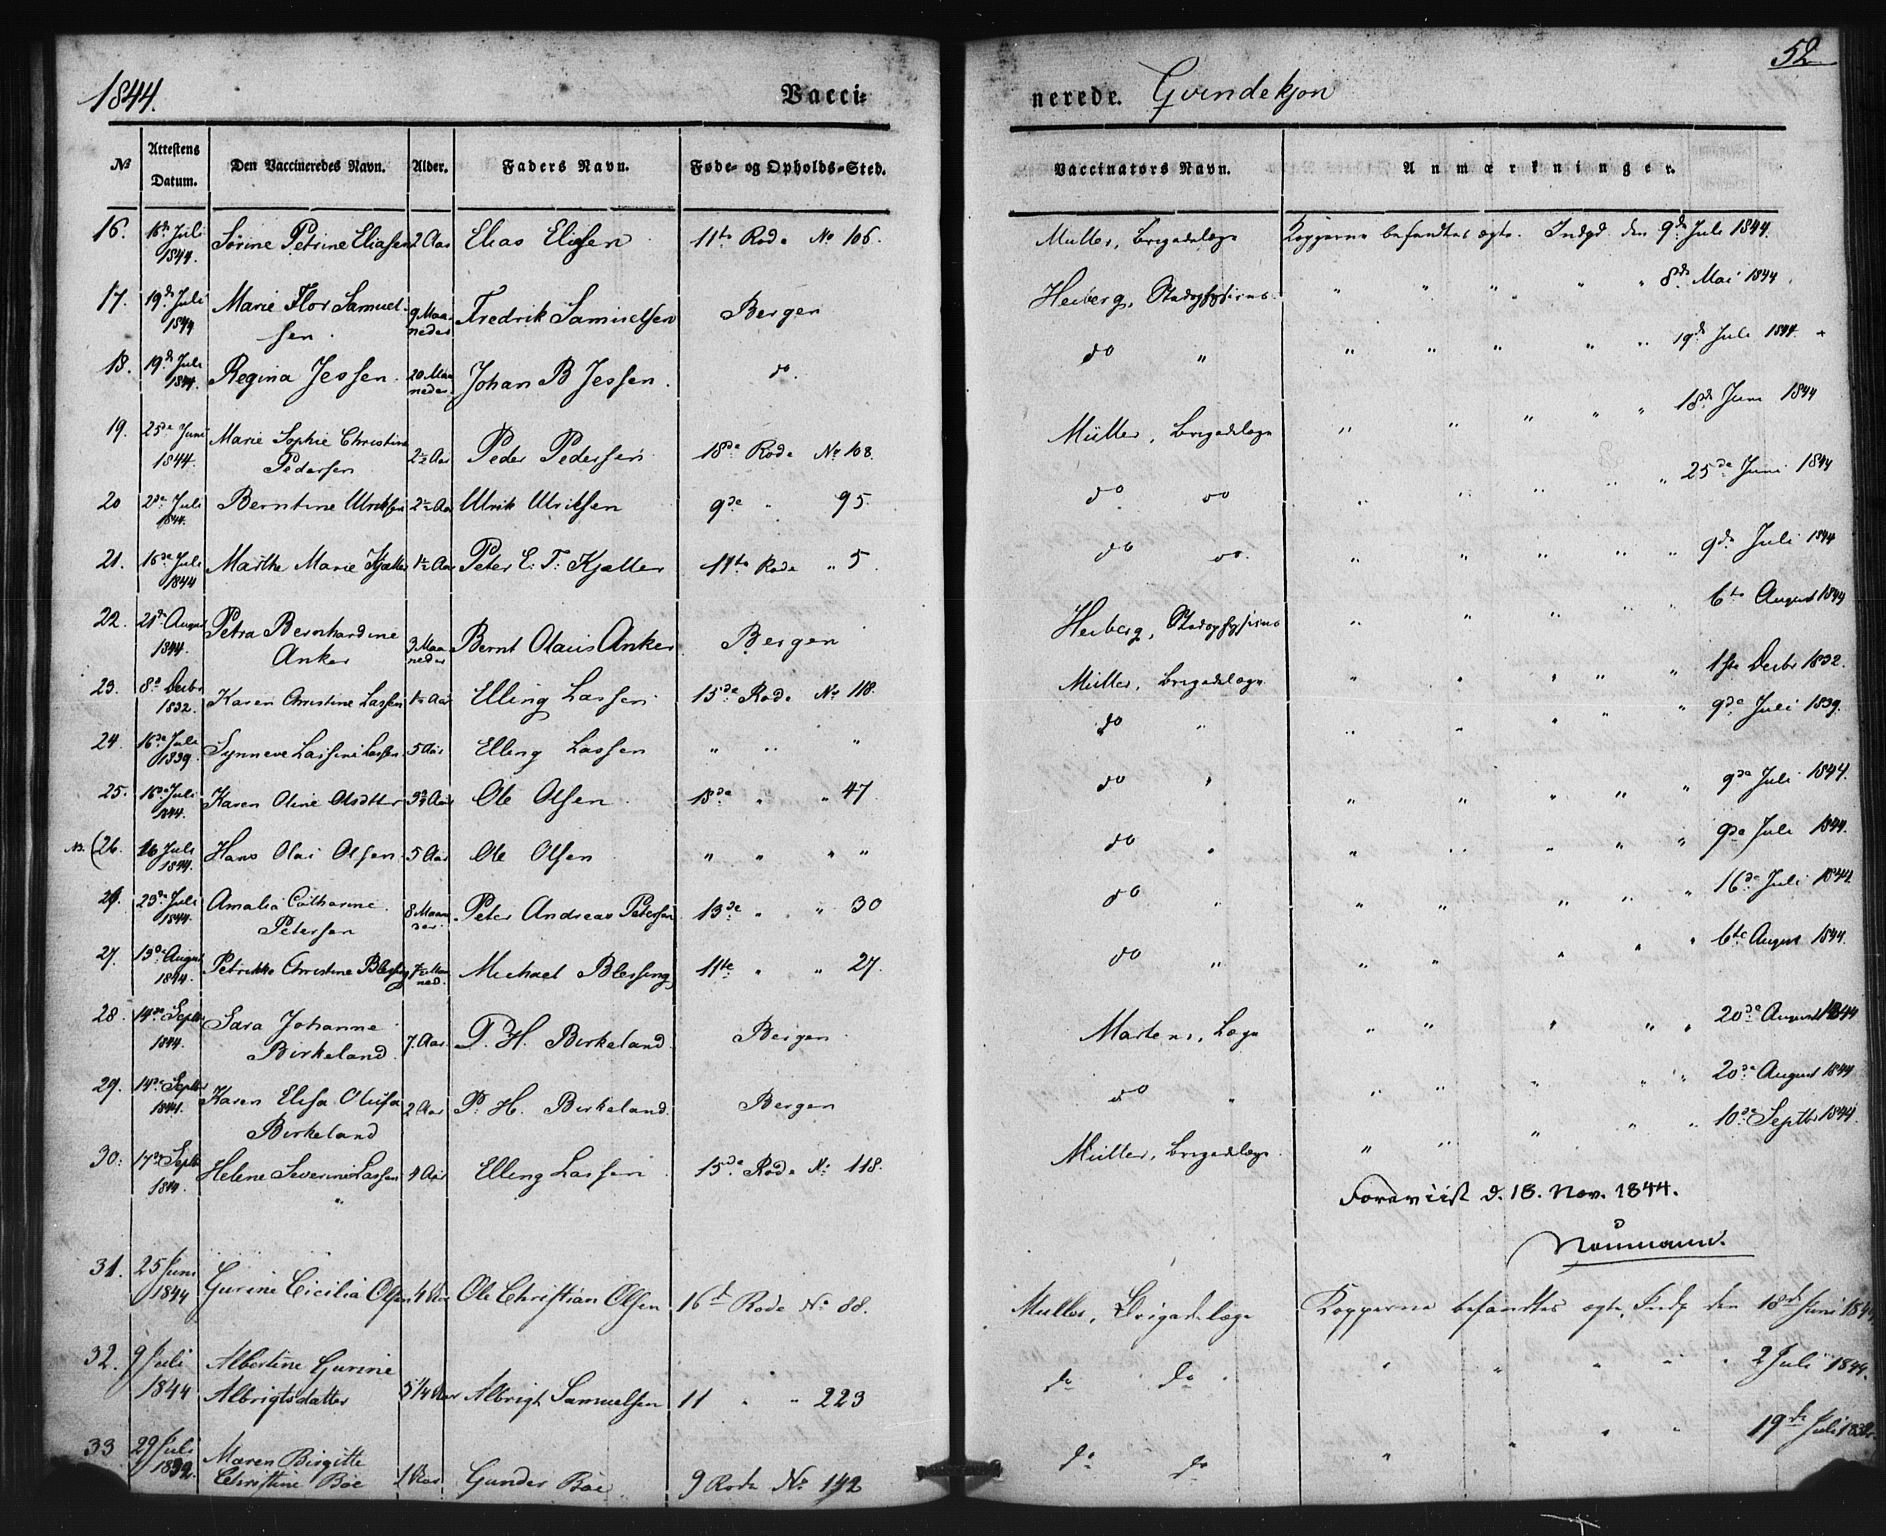 1844.
Vacci-
nerede. Qvindekjøn
52
No | Attestens Datum. | Den Vaccineredes Navn. | Alder. | Faders Navn. | Føde- og Opholds-Sted. | Vaccinators Navn. | Anmærkninger.
16. | 16de Juli 1844. | Sørine Petrine Eliasen | 2 Aar | Elias Eliasen | 11te Rode No 106. | Muller, Brigadelæge | Kopperne befandtes ægte. Indgd den 9de Juli 1844.
17. | 19de Juli 1844 | Marie Flor Samuelsen. | 9 Maaneder | Fredrik Samuelsen | Bergen | Heiberg, Stadsphysicus. | " " " " " 8de Mai 1844.
18. | 19de Juli 1844. | Regina Jessen. | 20 Maaneder | Johan B Jessen. | do. | do " | " " " " " 19de Juli 1844.
19. | 25de Juni 1844. | Marie Sophie Christine Pedersen | 2½ Aar | Peder Pedersen | 18de Rode No 108. | Müller, Brigadelæge | " " " " " 18de Juni 1844
20 | 2de Juli 1844. | Berntine Ulriksen | 2½ Aar | Ulrik Ulriksen | 9de " 95 | do do | " " " " " 25de Juni 1844
21. | 16de Juli 1844 | Marthe Marie Kjøtter | 1½ Aar | Peter E. T. Kjøtter | 11te Rode " 5. | do do. | " " " " " 9de Juli 1844
22. | 21de August 1844. | Petra Bernhardine Anker | 3 Maaneder | Bernt Olaus Anker. | Bergen | Heiberg, Stadsphysicus | " " " " " 6te August 1844
23. | 8de Decbr 1832. | Karen Christine Lassen | 1½ Aar | Elling Lassen. | 15de Rode No 118. | Müller, Brigadelæge | " " " " " 1ste Decbr 1832.
24. | 16de Juli 1839. | Synneve Lassine Lassen | 5 Aar | Elling Lassen | " " " | do " | " " " " " 9de Juli 1839.
25. | 16de Juli 1844. | Karen Oline Olsdtter | Aar | Ole Olsen | 18de " " 47. | do " | " " " " " 9de Juli 1844.
NB. (26. | 16 Juli 1844. | Hans Olai Olsen | 5 Aar | Ole Olsen | " " " " | do " | " " " " " 9de Juli 1844.
23de Juli 1844. | Amalia Catharine Petersen | 8 Maaneder. | Peter Andreas Petersen | 13de " " 30 | do " | " " " " " 16de Juli 1844
27. | 13de August 1844. | Petrikke Christine Blessing | 7½ Maaned. | Michael Blessing | 11te " " 27. | do " | " " " " " 6te August 1844.
28. | 14de Septbr 1844. | Sara Johanne Birkeland. | 7 Aar. | P. H. Birkeland. | Bergen. | Martens, Læge | " " " " " 20de August 1844
29. | 14de Septbr 1844. | Karen Elisa Olufa Birkeland | 2 Aar | P. H. Birkeland. | Bergen | do " | " " " " " 20de August 1844
30. | 17de Septbr 1844. | Helene Severine Lassen | 4 Aar | Elling Lassen | 15de Rode No 118. | Müller, Brigadelæge. | " " " " " 10de Septbr 1844.
Foreviist d. 18. Nov. 1844.
Neumann.
31. | 25 Juni 1844 | Gurine Cicilia Olsen | 4 Aar | Ole Christian Olsen | 16de Rode No 88. | Muller, Brigadelæge | Kopperne befandtes ægte, Indg den 18de Juni 1844
32. | 9 Juli 1844 | Albertine Gurine Albrigtsdatter | 5 1/4 Aar | Albrigt Samuelsen | 11 " " 223 | do do | " " " " " 2 Juli 1844.
33 | 29 Juli 1832. | Maren Birgitte Christine Böe | 1 Aar | Gunder Böe. | 9 Rode No 142 | do do | " " " " 19de Juli 1832.